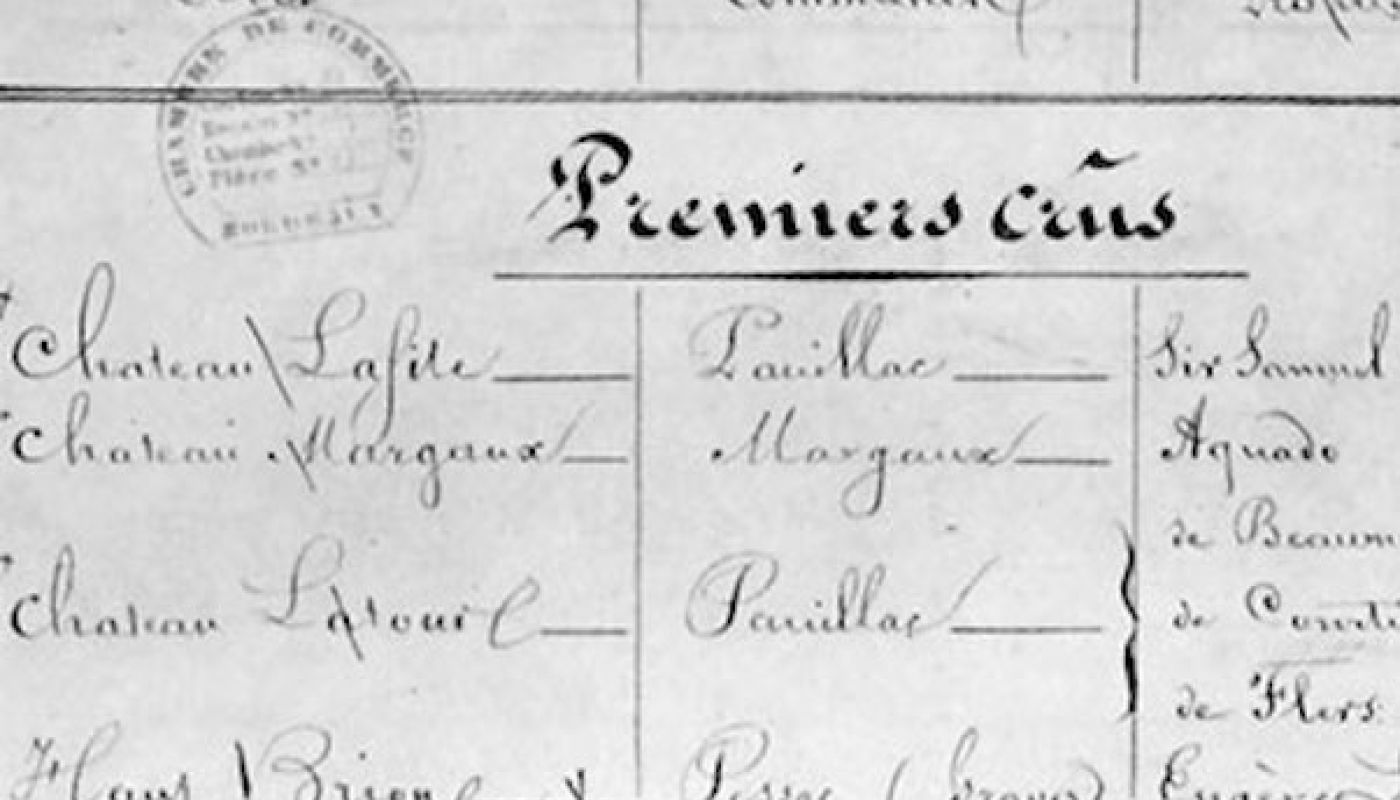 Communes
CHAMBRE DE COMMERCE
BORDEAUX
Premiers crûs
Chateau Lafite Pauillac Sir Samuel
Chateau Margaux Margaux Aguado
de Beaum
Chateau Latour Pauillac de Courti
de Flers
Haut Brion Pessac (Graves) Eugène